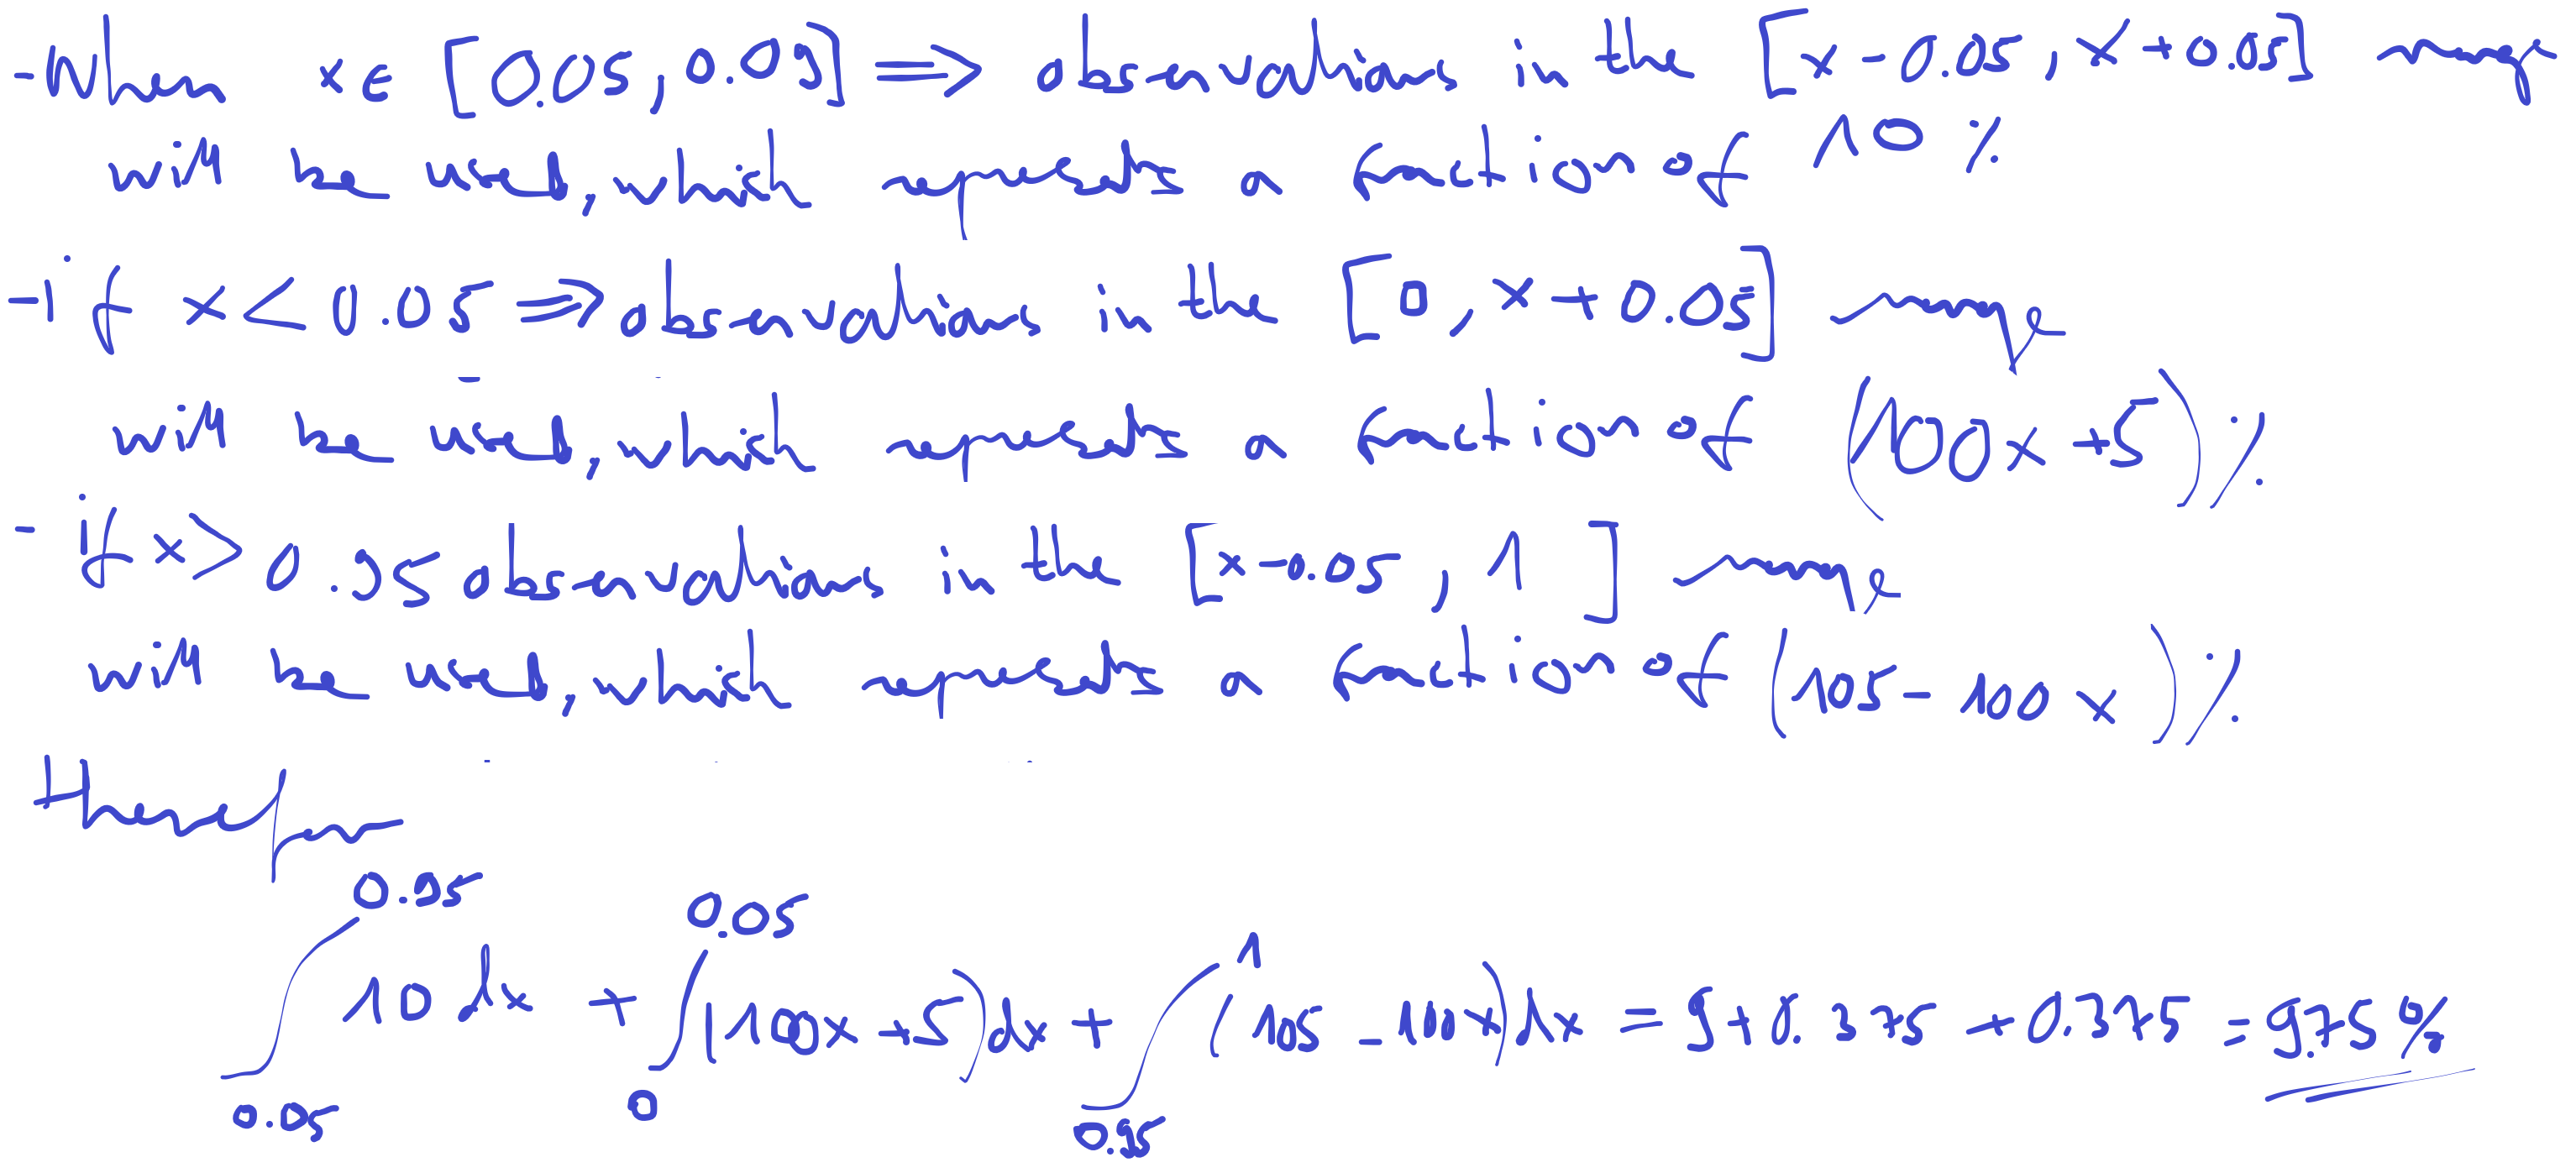 -When x ∈ [0.05, 0.09] ⟹ observations in the [x - 0.05, x + 0.05] range
will be used, which represents a fraction of 10 %
-if x < 0.05 ⟹ observations in the [0, x + 0.05] range
will be used, which represents a fraction of (100x + 5) %
- if x > 0.95 observations in the [x - 0.05, 1] range
will be used, which represents a fraction of (105 - 100x) %
therefore
∫_{0.05}^{0.95} 10 dx + ∫_{0}^{0.05} (100x + 5) dx + ∫_{0.95}^{1} (105 - 100x) dx = 9 + 0.375 + 0.375 = 9.75 %